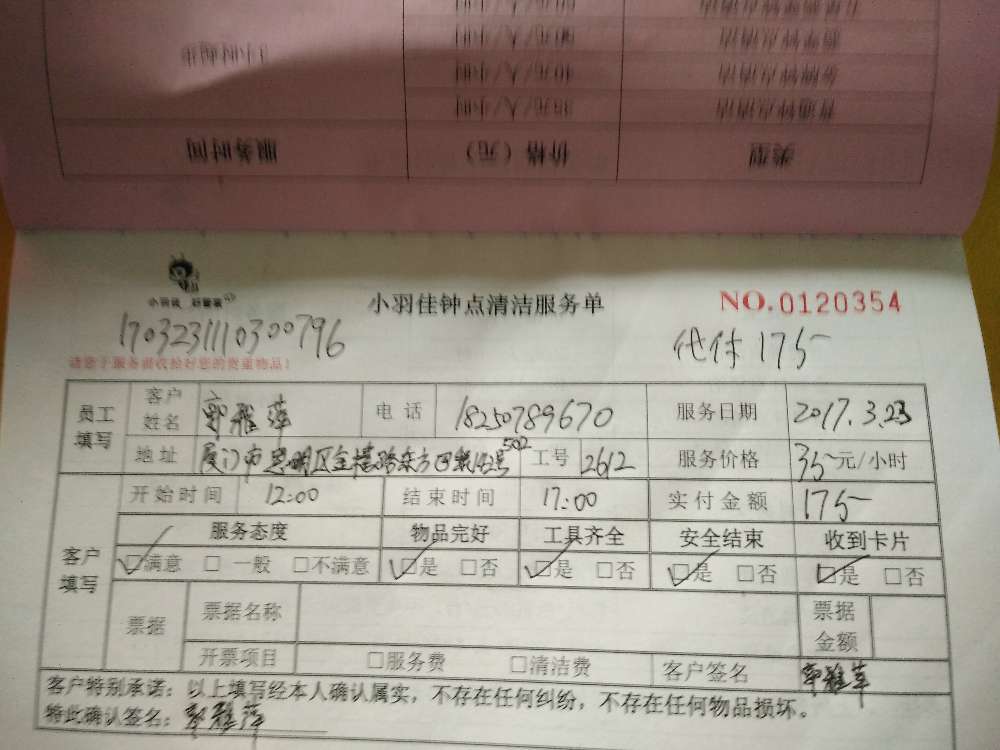 服务时间 价格（元） 类型
35元/人/小时 普通钟点清洁
40元/人/小时 金牌钟点清洁
小羽佳 好管家
小羽佳钟点清洁服务单
NO.0120354
1703231110300796
代付 175-
请您于服务前收拾好您的贵重物品！
员工填写 客户姓名 郭雅萍 电话 18250789670 服务日期 2017.3.23
地址 厦门市思明区金榜路东方巴黎142号502 工号 2612 服务价格 35-元/小时
客户填写 开始时间 12:00 结束时间 17:00 实付金额 175-
服务态度 物品完好 工具齐全 安全结束 收到卡片
☑满意 □一般 □不满意 ☑是 □否 ☑是 □否 ☑是 □否 ☑是 □否
票据 票据名称 票据金额
开票项目 □服务费 □清洁费 客户签名 郭雅萍
客户特别承诺：以上填写经本人确认属实，不存在任何纠纷，不存在任何物品损坏。
特此确认签名：郭雅萍